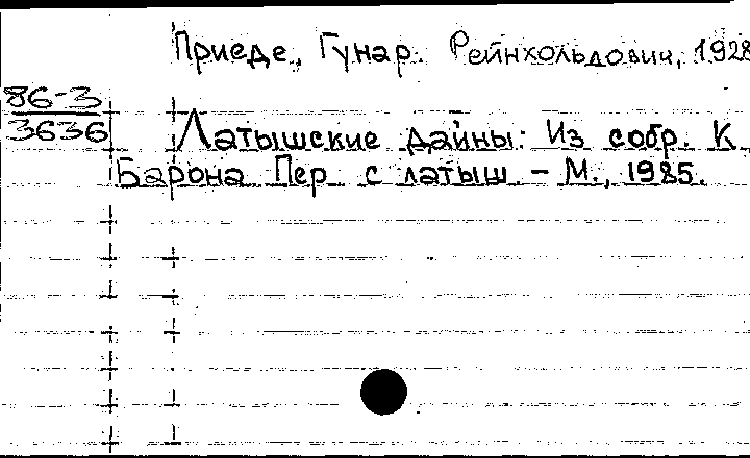 Приеде, Гунар Рейнхольдович, 1928
86-3
3636
Латышские дайны: Из собр. К.
Барона Пер с латыш. - М., 1985.